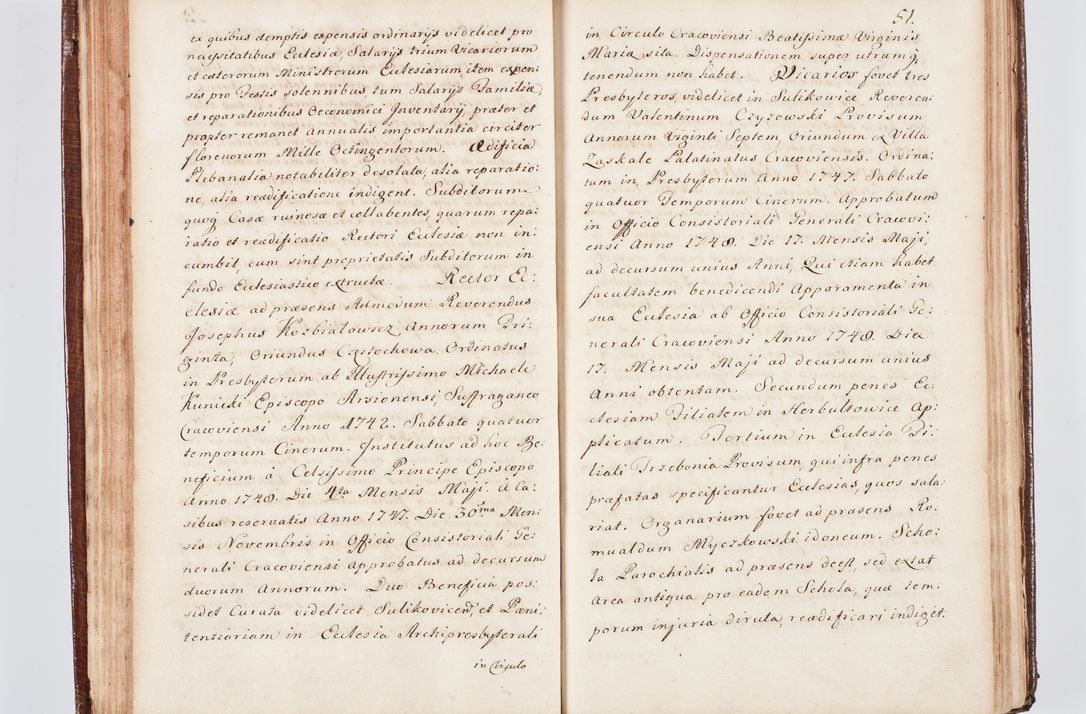 ex quibus demptis expensis ordinarijs videlicet pro
necessitatibus Ecclesiæ, Salarijs trium Vicariorum
et cæterorum Ministrorum Ecclesiarum, item expen-
sis pro Festis solennibus tum Salarijs Familiæ,
et reparationibus Œconomici Inventarij, præter et
propter remanet Annualis importantia circiter
florenorum Mille Octingentorum. Ædificia
Plebanalia notabiliter desolata, alia reparatio:
ne, alia reædificatione indigent. Subditorum
quoq̃ Casæ ruinosæ et collabentes, quarum repa:
ratio et reædificatio Rectori Ecclesiæ non in:
cumbit, cum sint proprietatis Subditorum in
fundo Ecclesiastico extructæ. Rector Ec:
clesiæ ad præsens Admodum Reverendus
Josephus Kozbiałowicz Annorum Tri:
ginta, Oriundus Częstochowa, Ordinatus
in Presbyterum ab Illustrissimo Michaele
Kunicki Episcopo Arsionensi Suffraganeo
Cracoviensi Anno 1742. Sabbato quatuor
temporum Cinerum. Institutus ad hoc Be:
neficium à Celsissimo Principe Episcopo
Anno 1748. Die 4ta Mensis Maji. À Ca:
sibus reservatis Anno 1747. Die 30ma Men:
sis Novembris in Officio Consistoriali Ge:
nerali Cracoviensi Approbatus ad decursum
duorum Annorum. Duo Beneficia pos:
sidet Curata videlicet Sulikovicen̄, et Pæni:
tentiariam in Ecclesia Archipresbyterali
in Circulo
51.
in Circulo Cracoviensi Beatissimæ Virginis
Mariæ sita. Dispensationem super utrumq̃
tenendum non habet. Vicarios fovet tres
Presbyteros, videlicet in Sulikowice Reveren:
dum Valentinum Czyzowski Provisum
Annorum Viginti Septem, Oriundum è Villa
Zaskale Palatinatus Cracoviensis. Ordina:
tum in Presbyterum Anno 1747. Sabbato
quatuor Temporum Cinerum. Approbatum
in Officio Consistoriali Generali Cracovi:
ensi Anno 1748. Die 17. Mensis Maji,
ad decursum unius Anni, Qui etiam habet
facultatem benedicendi Apparamenta in
sua Ecclesia ab Officio Consistoriali Ge:
nerali Cracoviensi Anno 1748. Die
17. Mensis Maji ad decursum unius
Anni obtentam. Secundum penes Ec:
clesiam Filialem in Herbultowice Ap:
plicatum. Tertium in Ecclesia Fi:
liali Trzebonia Provisum, qui infra penes
præfatas specificantur Ecclesias, quos sala:
riat. Organarium fovet ad præsens Ro:
mualdum Myczkowski idoneum. Scho:
la Parochialis ad præsens deest, sed extat
Area antiqua pro eadem Schola, quæ tem:
porum injuria diruta, reædificari indiget.